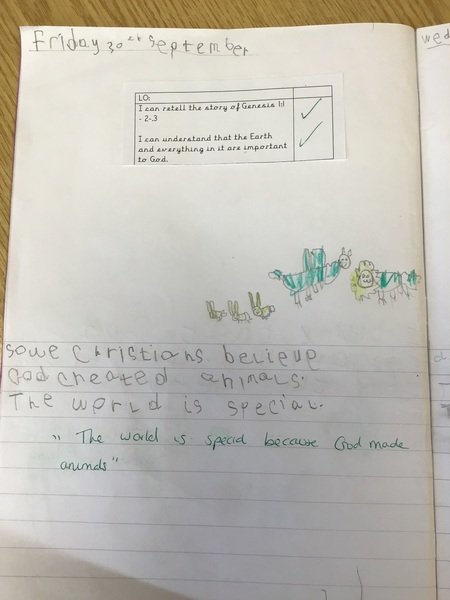 Friday 30th September
wed
LO:
I can retell the story of Genesis 1:1
- 2:3
I can understand that the Earth
and everything in it are important
to God.
some Christians believe
God created animals.
The world is special.
"The world is special because God made
animals"